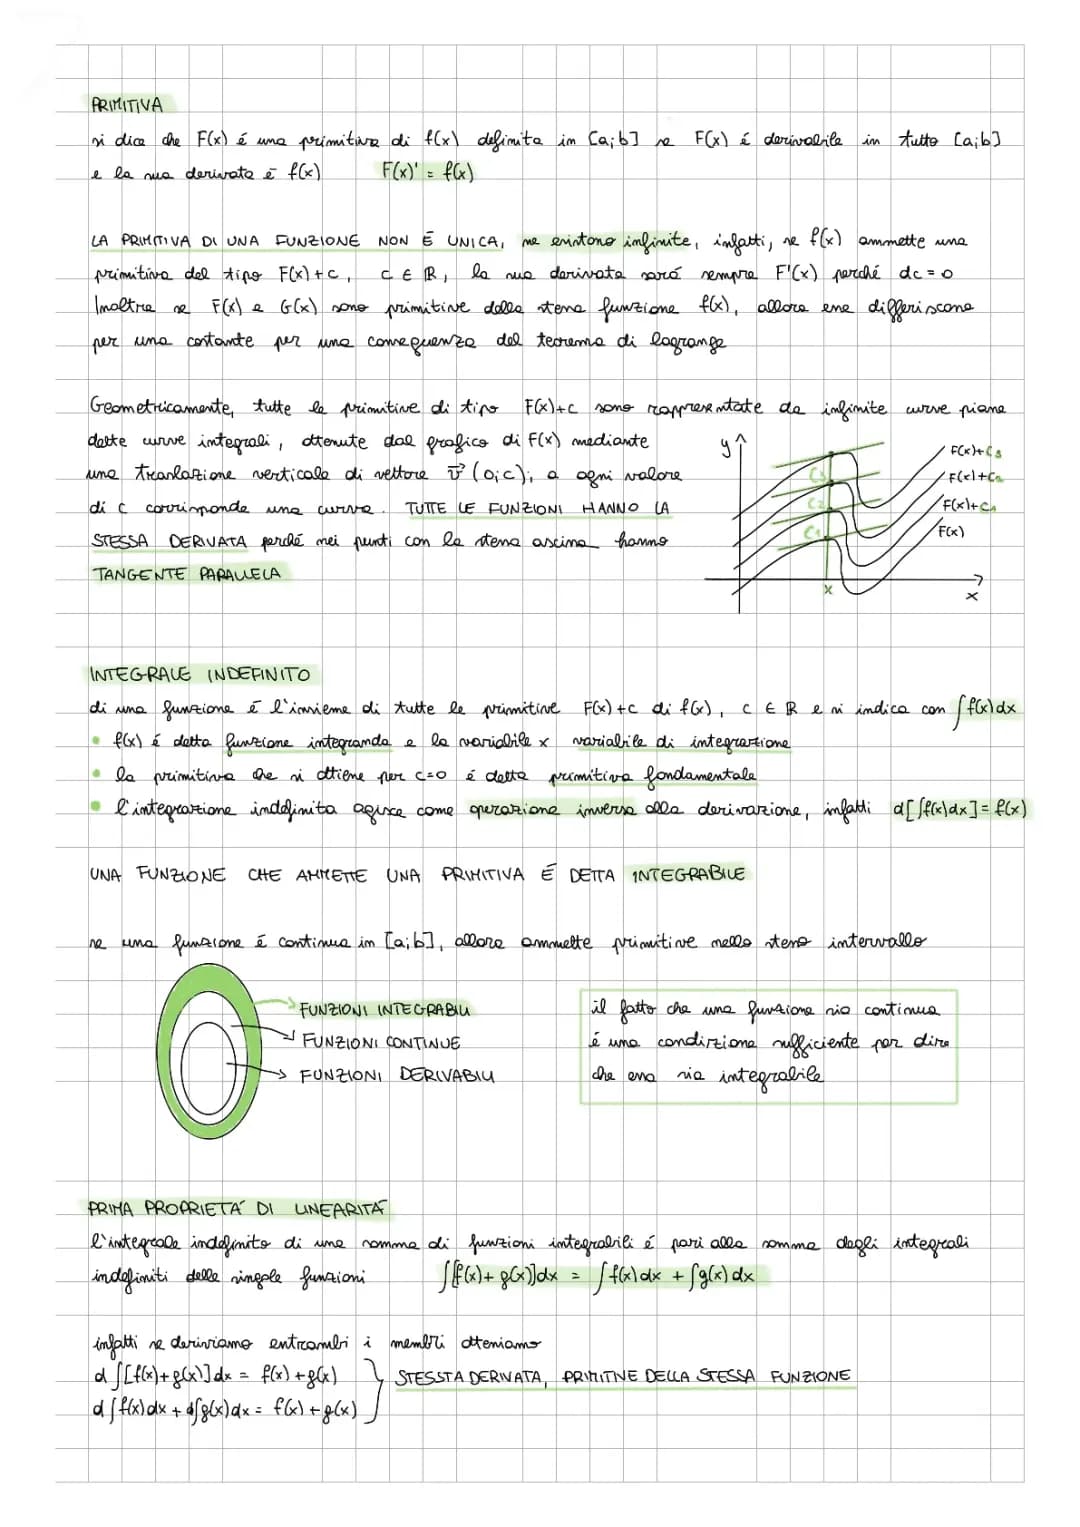 PRIMITIVA
si dice che F(x) é una primitiva di f(x) definita in [a;b] se F(x) é derivabile in tutto [a;b]
e la sua derivata é f(x) F(x)' = f(x)
LA PRIMITIVA DI UNA FUNZIONE NON É UNICA, ne esistono infinite, infatti, se f(x) ammette una
primitiva del tipo F(x)+c, c ∈ ℝ, la sua derivata sará sempre F'(x) perché dc = 0
Inoltre se F(x) e G(x) sono primitive della stessa funzione f(x), allora esse differiscono
per una costante per una conseguenza del teorema di lagrange
Geometricamente, tutte le primitive di tipo F(x)+c sono rappresentate da infinite curve piane
dette curve integrali, ottenute dal grafico di F(x) mediante
una traslazione verticale di vettore v⃗ (0;c); a ogni valore
di c corrisponde una curva. TUTTE LE FUNZIONI HANNO LA
STESSA DERIVATA perché nei punti con la stessa ascissa hanno
TANGENTE PARALLELA
y
F(x)+C₃
F(x)+C₂
F(x)+C₁
F(x)
C₃
C₂
C₁
x
x
INTEGRALE INDEFINITO
di una funzione é l'insieme di tutte le primitive F(x)+c di f(x), c ∈ ℝ e si indica con ∫f(x)dx
• f(x) é detta funzione integranda e la variabile x variabile di integrazione
• la primitiva che si ottiene per c=0 é detta primitiva fondamentale
• l'integrazione indefinita agisce come operazione inversa alla derivazione, infatti d[∫f(x)dx] = f(x)
UNA FUNZIONE CHE AMMETTE UNA PRIMITIVA É DETTA INTEGRABILE
se una funzione é continua in [a;b], allora ammette primitive nello stesso intervallo
FUNZIONI INTEGRABILI
FUNZIONI CONTINUE
FUNZIONI DERIVABILI
il fatto che una funzione sia continua
é una condizione sufficiente per dire
che essa sia integrabile
PRIMA PROPRIETÁ DI LINEARITÁ
l'integrale indefinito di una somma di funzioni integrabili é pari alla somma degli integrali
indefiniti delle singole funzioni ∫[f(x)+g(x)]dx = ∫f(x)dx + ∫g(x)dx
infatti se deriviamo entrambi i membri otteniamo
d∫[f(x)+g(x)]dx = f(x)+g(x)
d∫f(x)dx + d∫g(x)dx = f(x)+g(x)
STESSTA DERIVATA, PRIMITIVE DELLA STESSA FUNZIONE